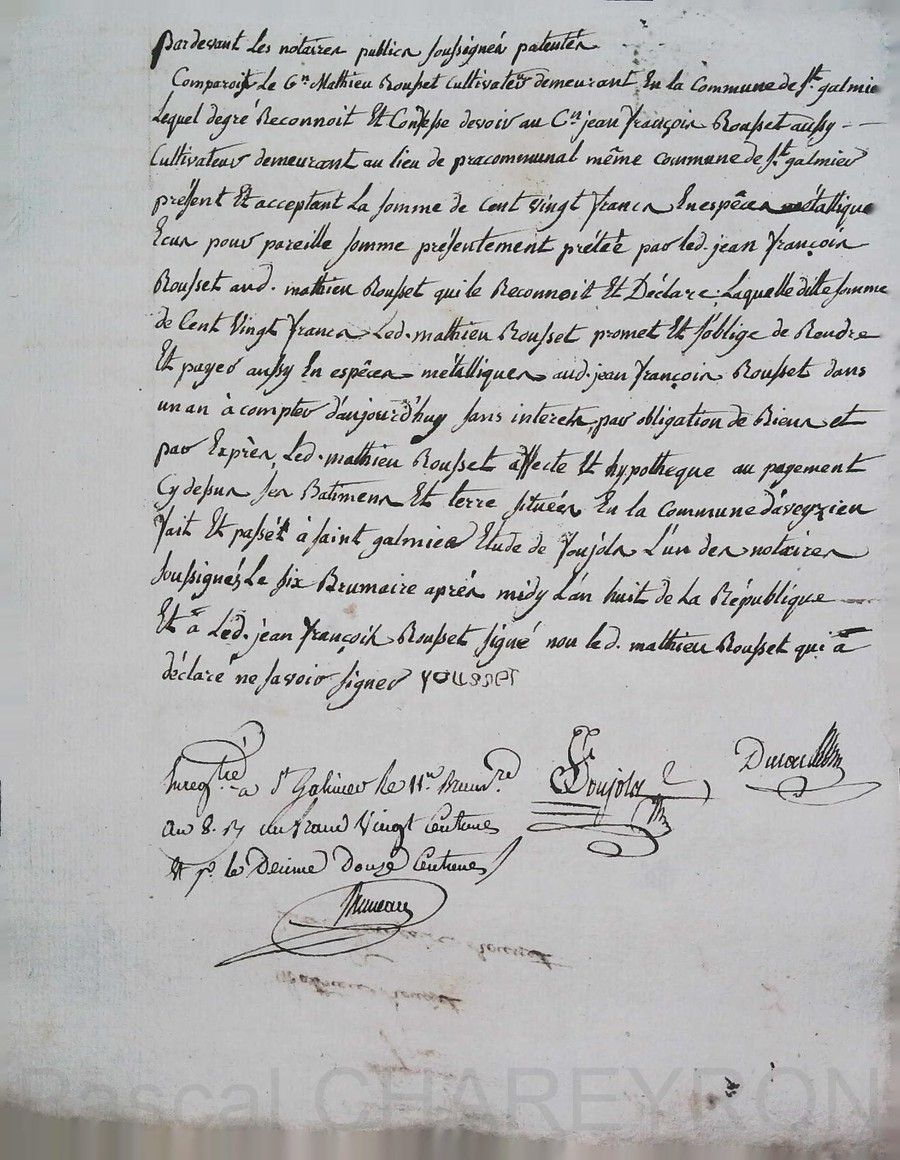 Pardevant Les notaires publics soussignés patentés
Comparoit Le C.en Mathieu Rousset Cultivateur demeurant En La Commune de St. galmier
Lequel degré Reconnoit Et Confesse devoir au C.en jean françois Rousset aussy
Cultivateur demeurant au lieu de pracommunal même commune de St. galmier
présent Et acceptant La somme de Cent vingt francs En espèces métallique
Ecus pour pareille somme présentement prétée par led. jean françois
Rousset aud. mathieu Rousset qui le Reconnoit Et Déclare; Laquelle ditte somme
de Cent Vingt francs Led. mathieu Rousset promet Et s'oblige de Rendre
Et payer aussy En espèces métalliques aud. jean françois Rousset dans
un an à compter d'aujourd'huy sans interets, par obligation de Biens et
par Exprès Led. mathieu Rousset affecte Et hypotheque au payement
Cy dessus ses Batimens Et terre situées En La Commune d'aveyzieu
fait Et passét à saint galmier Etude de Soujols L'un des notaires
soussignés Le six Brumaire après midy L'an huit de La République
Et à Led. jean françois Rousset signé non led. mathieu Rousset qui à
déclaré ne savoir signer rousset
Enregtré a St Galmier le 11.e Brum.re
an 8. R un franc Vingt Centimes
Et p. le Decime Douze Centimes
Soujols
Bruneau
Pascal CHAREYRON